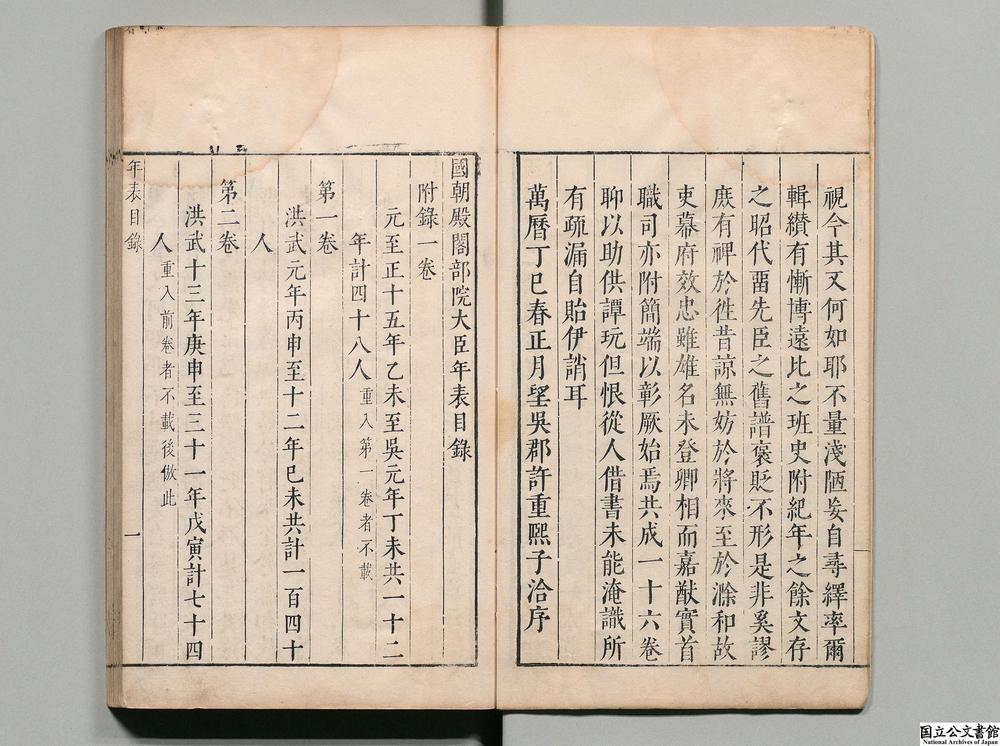 視今其又何如耶不量淺陋妄自尋繹率爾
輯纉有慚博遠比之班史附紀年之餘文存
之昭代畱先臣之舊譜褒貶不形是非奚謬
庻有裨於徃昔諒無妨於將來至於滁和故
吏幕府效忠雖雄名未登卿相而嘉猷實首
職司亦附簡端以彰厥始焉共成一十六卷
聊以助供譚玩但恨從人借書未能淹識所
有疏漏自貽伊誚耳
萬曆丁巳春正月望吳郡許重熈子洽序
國朝殿閣部院大臣年表目錄
附錄一卷
元至正十五年乙未至吳元年丁未共一十二
年計四十八人重入第一卷者不載
第一卷
洪武元年丙申至十二年巳未共計一百四十
人
第二卷
洪武十三年庚申至三十一年戊寅計七十四
人重入前卷者不載後倣此
年表目錄
一
国立公文書館
National Archives of Japan